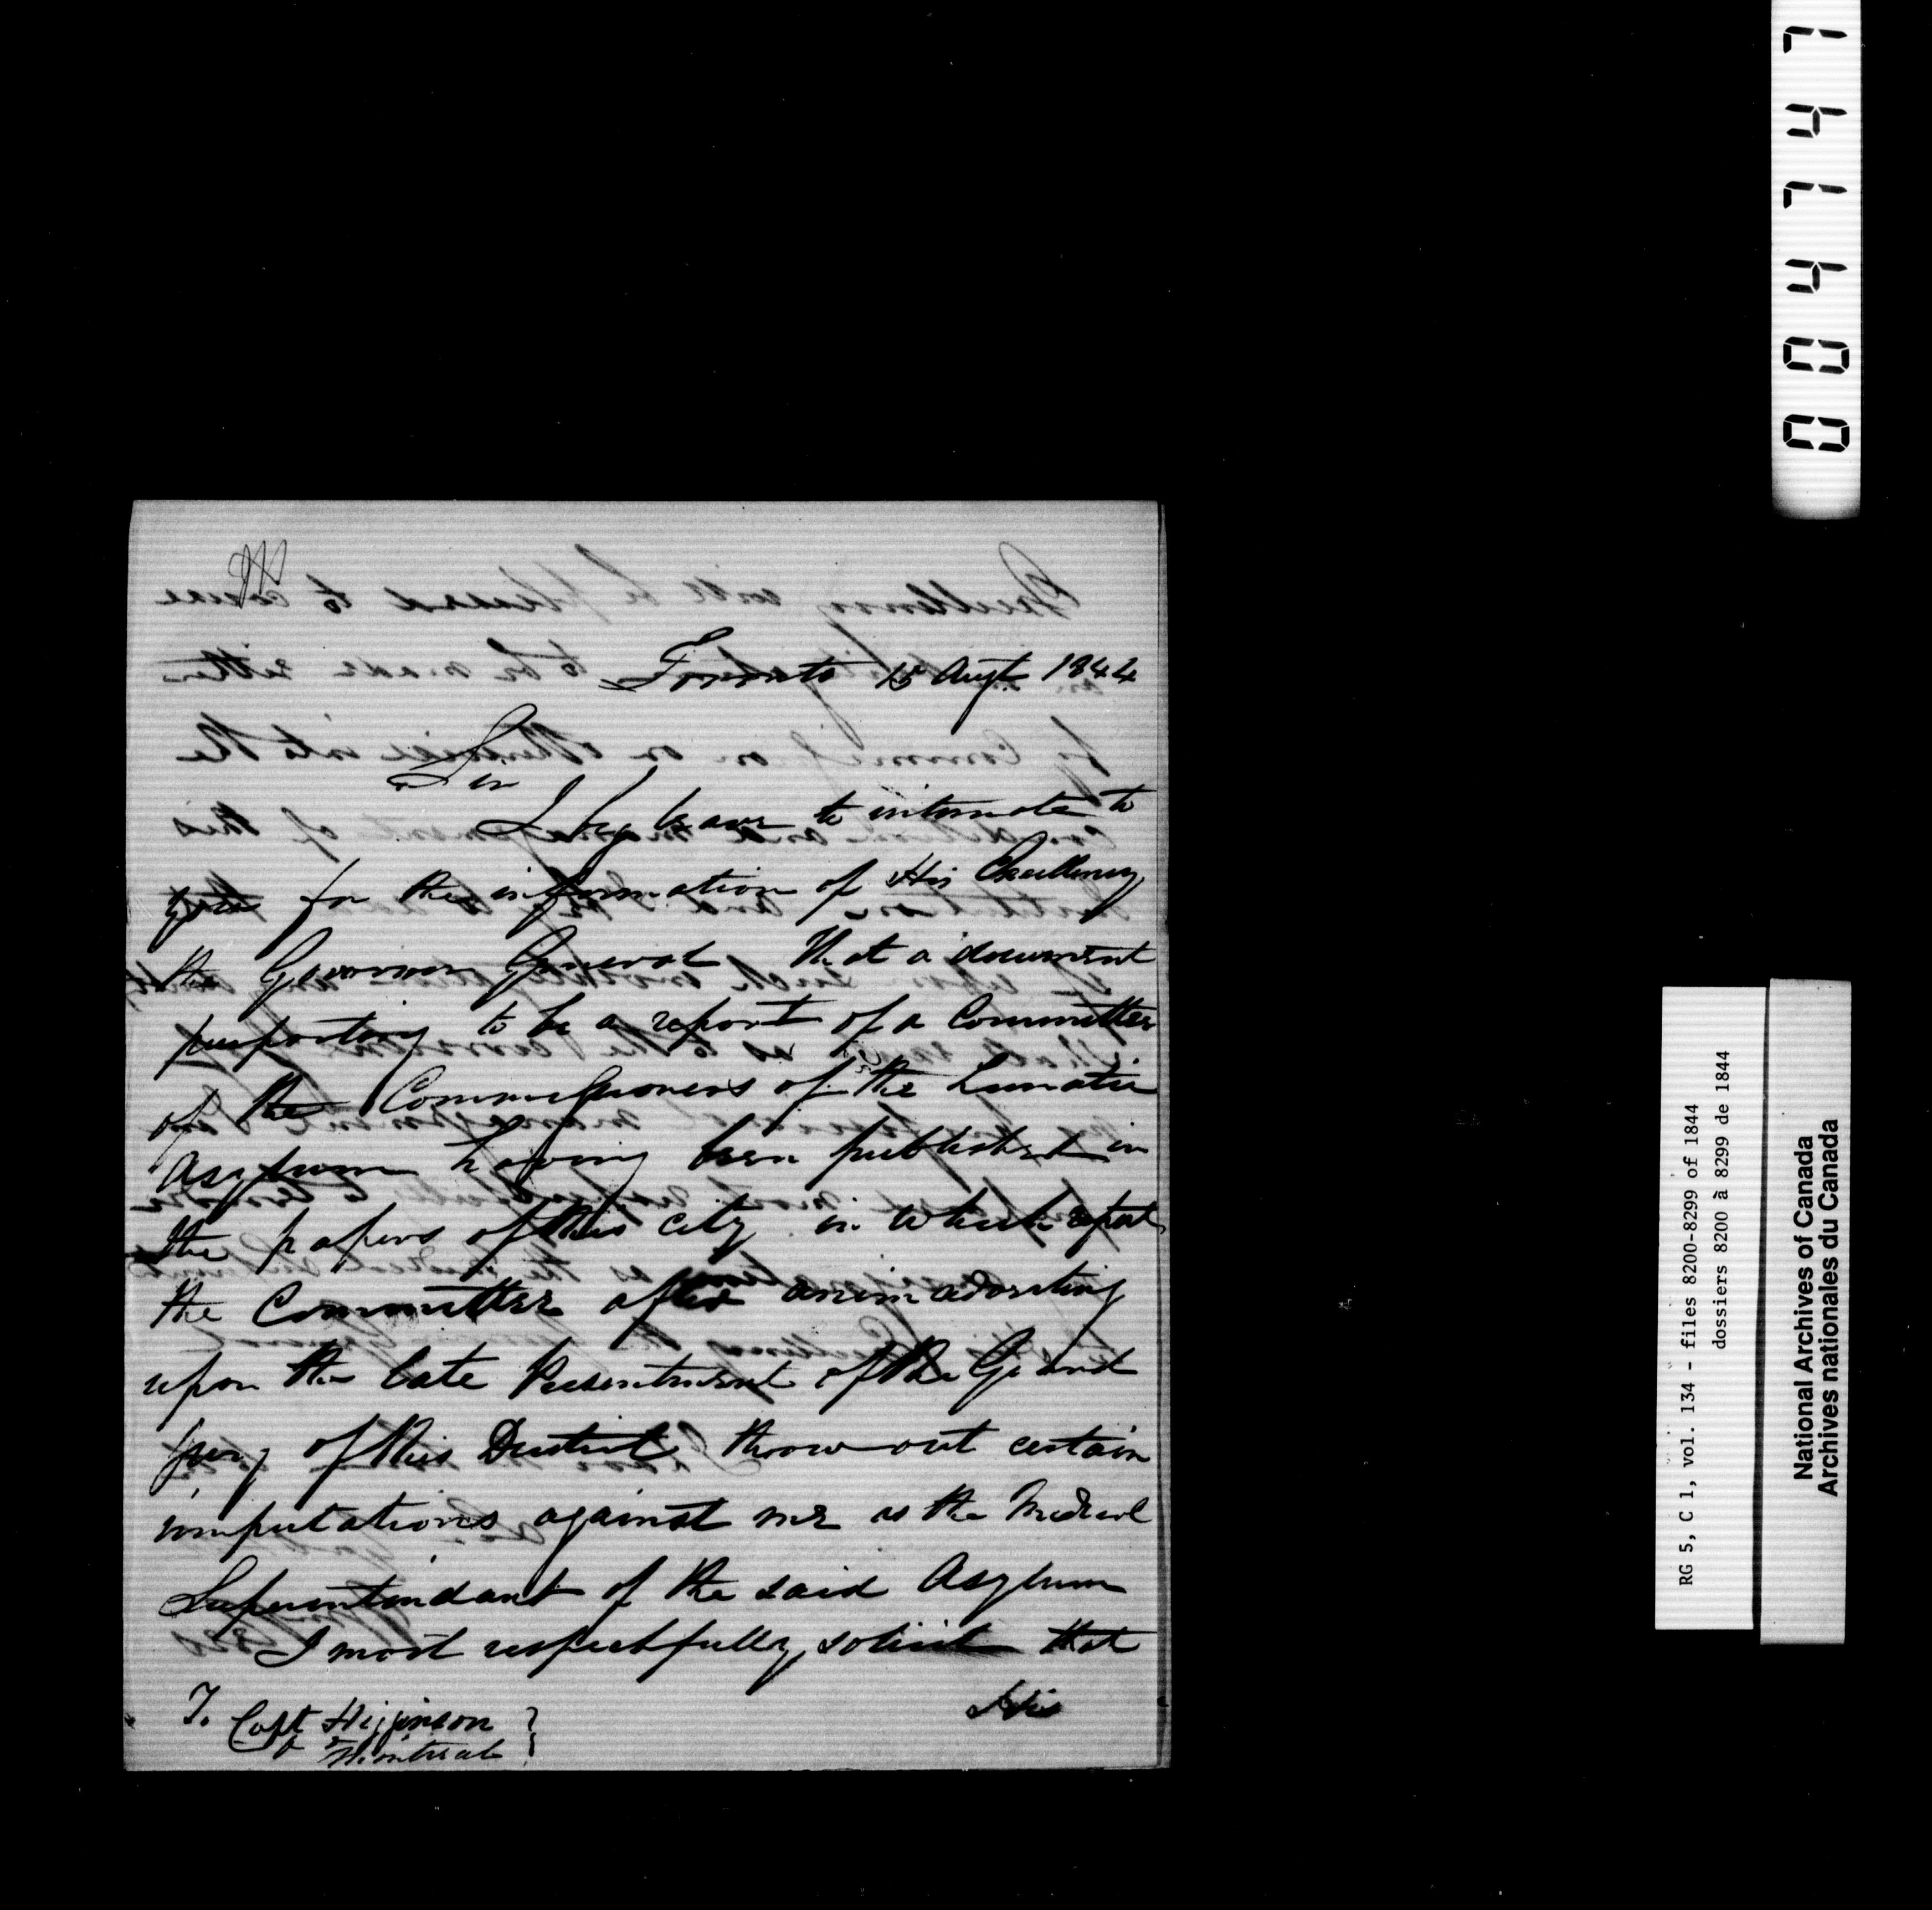 Toronto 15 Augt 1844
Sir
I beg leave to intimate to
you for the information of His Excellency
the Governor General that a document
purporting to be a report of a Committee
of the Commissioners of the Lunatic
Asylum having been published in
the papers of this city in which report
the Committee after animadverting
upon the late Presentment of the Grand
Jury of this District throw out certain
imputations against me as the Medical
Superintendant of the said Asylum
I most respectfully solicit that
His
To Capt Higginson
Montreal
004747
RG 5, C 1, vol. 134 - files 8200-8299 of 1844
dossiers 8200 à 8299 de 1844
National Archives of Canada
Archives nationales du Canada